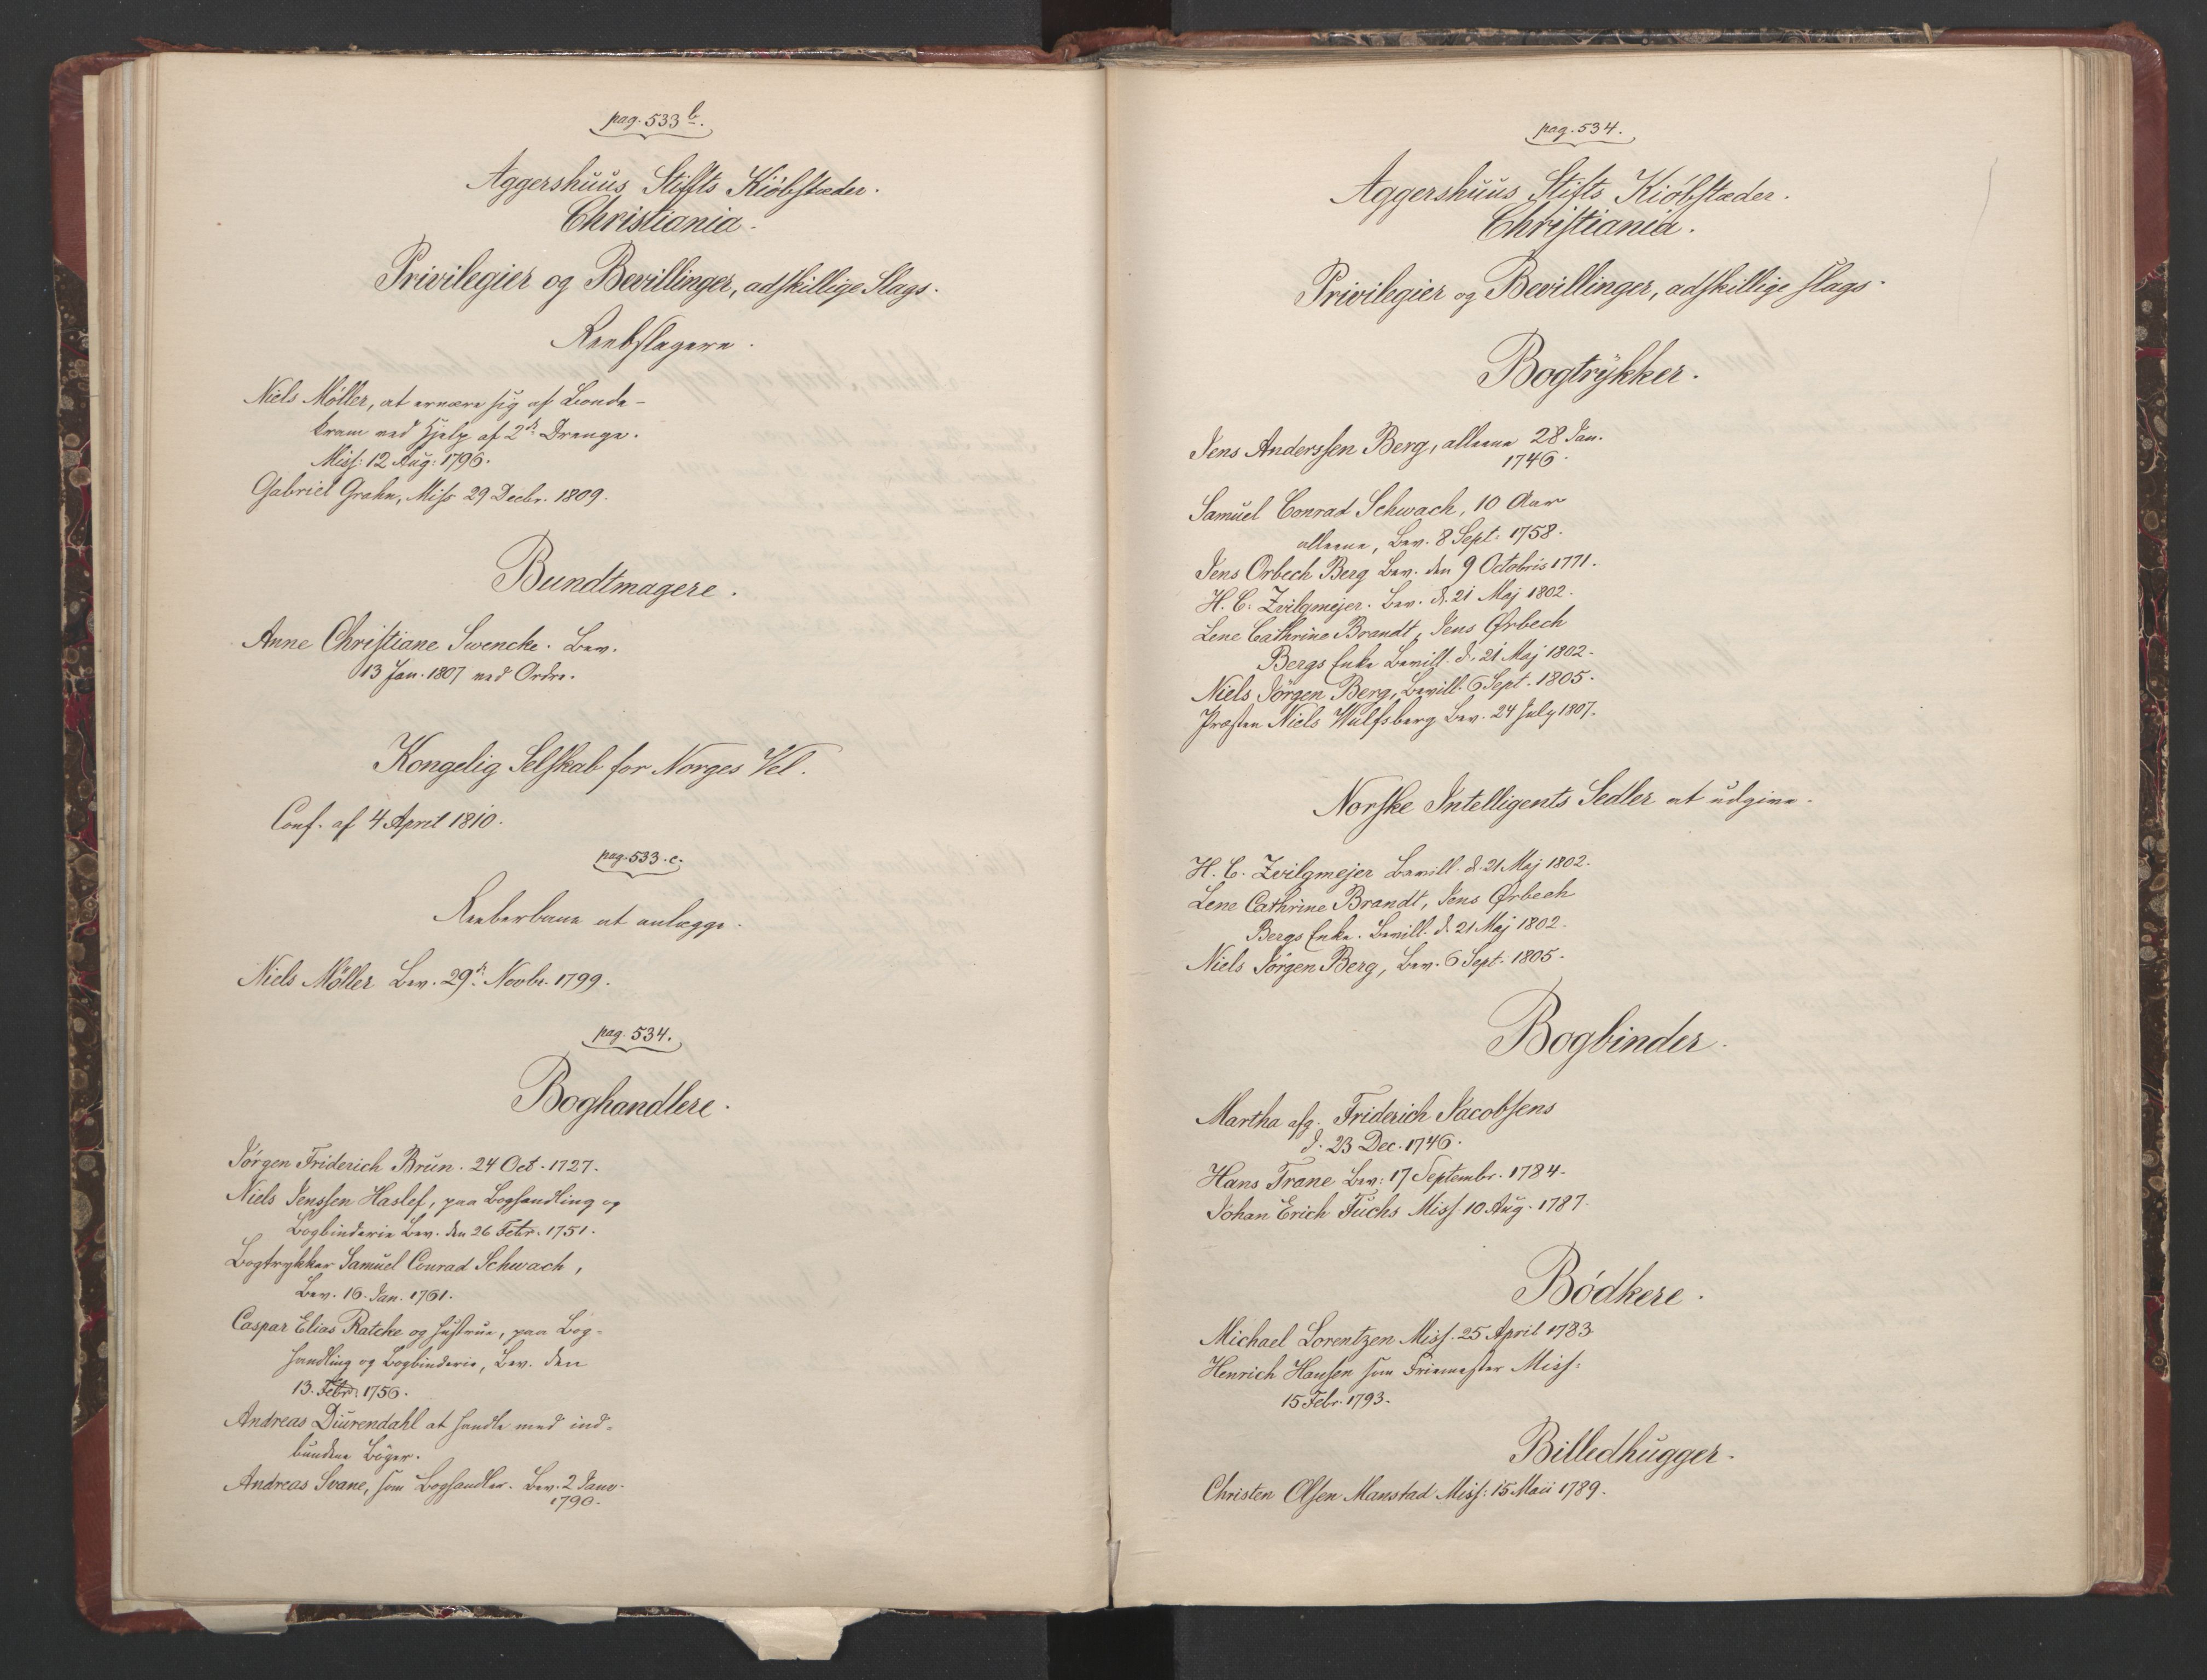 pag. 533 b.
Aggershuus Stifts Kiöbstæder.
Christiania.
Privilegier og Bevillinger, adskillige Slags.
Reebslagere.
Niels Möller, at ernære sig af Bonde-
kram ved Hjelp af 2de Drenge.
Miss: 12 Aug: 1796.
Gabriel Grahn, Miss 29 Decbr. 1809.
Bundtmagere.
Anne Christiane Swencke. Bev.
13 Jan. 1807 ved Ordre.
Kongelig Selskab for Norges Vel.
Conf. af 4 April 1810.
pag. 533. c.
Reeberbane at anlægge.
Niels Möller Bev. 29de Novbr. 1799.
pag. 534.
Boghandlere.
Jörgen Friderich Brun. 24 Oct. 1727.
Niels Jenssen Haslef, paa Boghandling og
Bogbinderie Bev. den 26 Febr. 1751.
Bogtrykker Samuel Conrad Schwach,
Bev. 16. Jan. 1761.
Caspar Elias Ratcke og Hustrue, paa Bog-
handling og Bogbinderie, Bev. den
13. Febr. 1756.
Andreas Diurendahl at handle med ind-
bundne Böger.
Andreas Svane, som Boghandler. Bev. 2 Janv.
1790.
pag. 534.
Aggershuus Stifts Kiöbstæder.
Christiania.
Privilegier og Bevillinger, adskillige slags.
Bogtrykker.
Jens Anderssen Berg, alleene 28 Jan.
1746.
Samuel Conrad Schwach, 10 Aar
alleene, Bev. 8 Sept. 1758.
Jens Orbech Berg Bev. den 9 Octobris 1771.
H. C. Zvilgmejer. Bev. d. 21 Maj 1802.
Lene Cathrine Brandt, Jens Ørbech
Bergs Enke Bevill. d. 21 Maj 1802.
Niels Jörgen Berg, Bevill. 6 Sept. 1805.
Præsten Niels Wulfsberg Bev. 24 July 1807.
Norske Intelligents Sedler at udgive.
H. C. Zvilgmejer Bevill. d. 21 Maj 1802.
Lene Cathrine Brandt, Jens Ørbech
Bergs Enke. Bevill. d. 21 Maj 1802.
Niels Jörgen Berg, Bev. 6 Sept. 1805.
Bogbinder.
Martha afg. Friderich Jacobsens
d. 23 Dec. 1746.
Hans Trane Bev: 17 Septembr. 1784.
Johan Erich Fuchs Miss. 10 Aug. 1787.
Bödkere.
Michael Lorentzen Miss. 25 April 1783.
Henrich Hansen som Friemester Miss:
15 Febr. 1793.
Billedhugger.
Christen Olsen Manstad Miss: 15 Maii 1789.